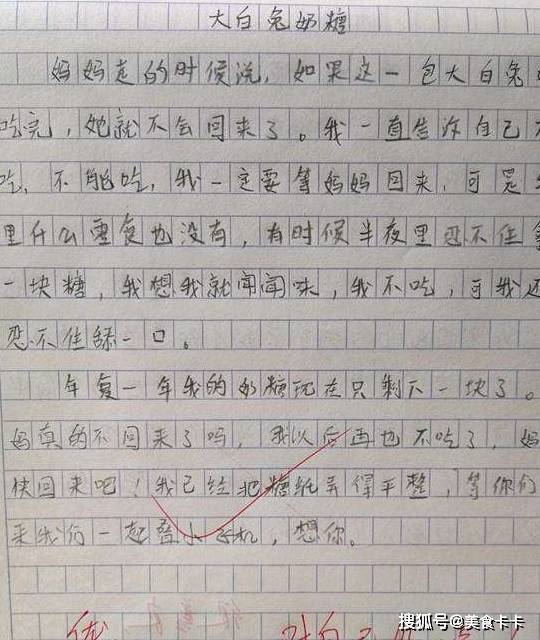 大白兔奶糖
妈妈走的时候说，如果这一包大白兔
吃完，她就不会回来了。我一直告诉自己不
吃，不能吃，我一定要等妈妈回来，可是
里什么零食也没有，有时候半夜里忍不住拿
一块糖，我想我就闻闻味，我不吃，可我还
忍不住舔一口。
年复一年我的奶糖现在只剩下一块了。
妈真的不回来了吗，我以后再也不吃了，妈
快回来吧！我已经把糖纸弄得平整，等你们
来我们一起叠小飞机，想你。
搜狐号@美食卡卡